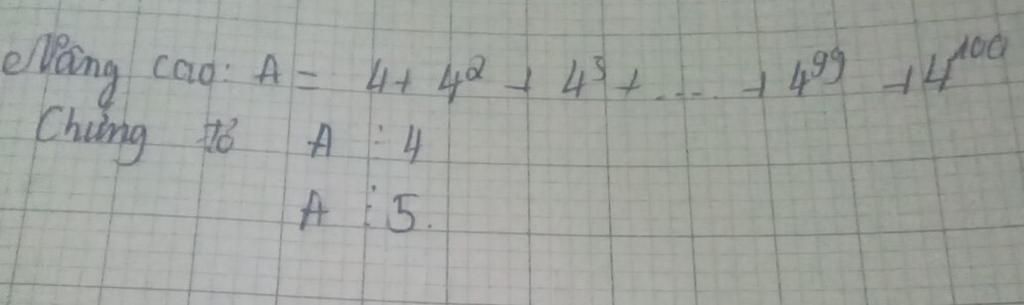 Nâng cao: A = 4 + 4² + 4³ + .... + 4⁹⁹ + 4¹⁰⁰
Chứng tỏ A ⋮ 4
A ⋮ 5.